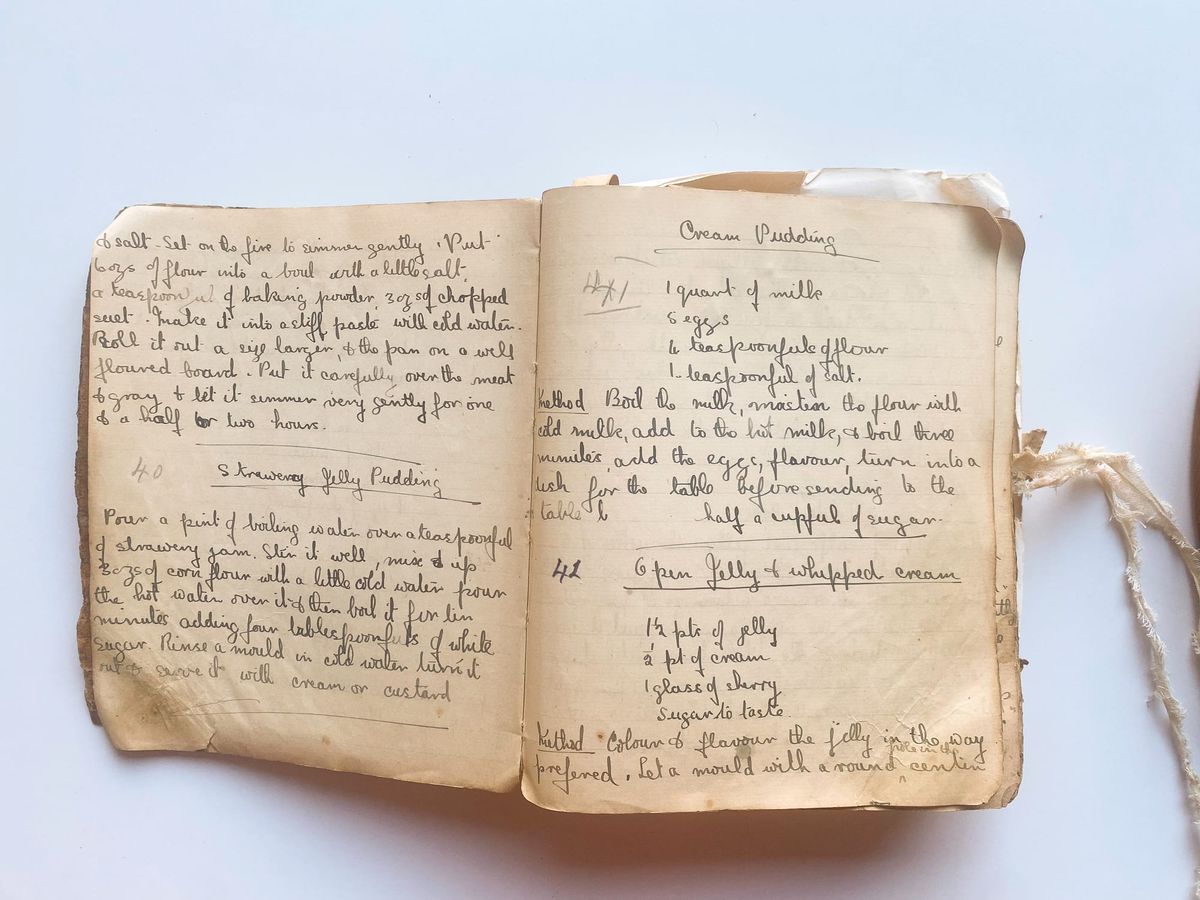 & salt - Set on the fire to simmer gently. Put
6 ozs of flour into a bowl with a little salt,
a teaspoonful of baking powder, 3 ozs of chopped
suet. Make it into a stiff paste with cold water.
Roll it out a size larger, & the pan on a well
floured board. Put it carefully over the meat
& gray & let it simmer very gently for one
& a half or two hours.
40 Strawerry Jelly Pudding
Pour a pint of boiling water over a teaspoonful
of strawery jam. Stir it well, mix up
3 ozs of corn flour with a little cold water pour
the hot water over it & then boil it for ten
minutes adding four tablespoonfuls of white
sugar. Rinse a mould in cold water turn it
out & serve it with cream or custard
Cream Pudding
41
1 quart of milk
5 eggs
4 teaspoonfuls of flour
1 teaspoonful of salt.
Method Boil the milk, moisten the flour with
cold milk, add to the hot milk, & boil three
minutes, add the eggs, flavour, turn into a
dish for the table before sending to the
table half a cupful of sugar.
41 Open Jelly & whipped cream
1½ pts of jelly
½ pt of cream
1 glass of sherry
Sugar to taste.
Method Colour & flavour the jelly in the way
prefered. Let a mould with a round hole in the center